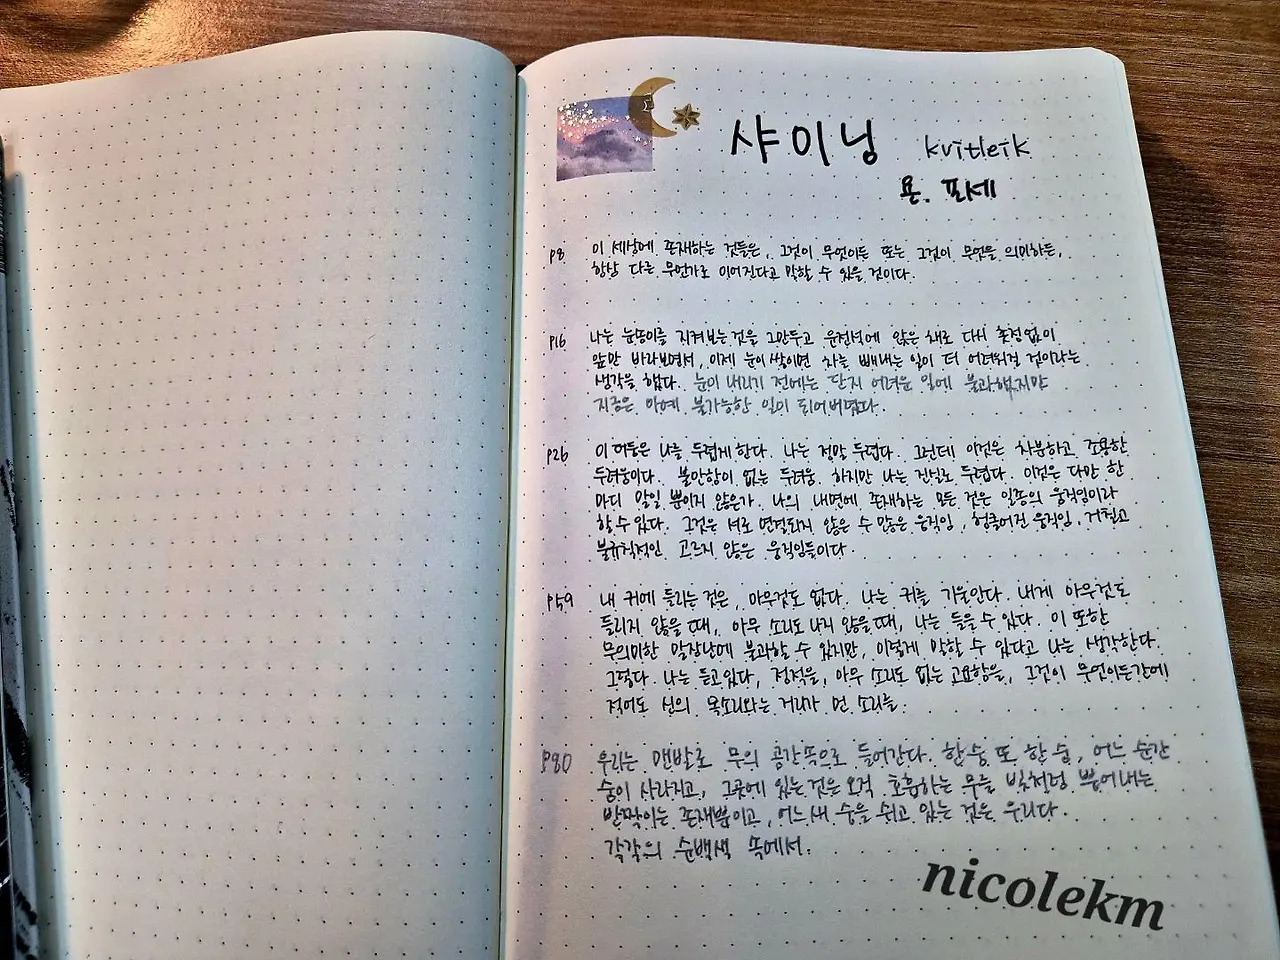 샤이닝 kvitleik
욘. 포세
p8 이 세상에 존재하는 것들은, 그것이 무엇이든 또는 그것이 무엇을 의미하든,
항상 다른 무언가로 이어진다고 말할 수 있을 것이다.
p16 나는 눈뭉이를 지켜보는 것을 그만두고 운전석에 앉은 채로 다시 초점없이
앞만 바라보면서, 이제 눈이 쌓이면 차를 빼내는 일이 더 어려워질 것이라는
생각을 했다. 눈이 내리기 전에는 단지 어려운 일에 불과했지만
지금은 아예 불가능한 일이 되어버렸다.
p26 이 터들은 나를 두렵게 한다. 나는 정말 두렵다. 그런데 이것은 차분하고 조용한
두려움이다. 불안함이 없는 두려움. 하지만 나는 진실로 두렵다. 이것은 다만 한
마디 말일 뿐이지 않은가. 나의 내면에 존재하는 모든 것은 일종의 움직임이라
할 수 있다. 그것은 서로 연결되지 않은 수많은 움직임, 헝클어진 움직임, 거칠고
불규칙적인 고르지 않은 움직임들이다.
p59 내 귀에 들리는 것은, 아무것도 없다. 나는 귀를 기울인다. 내게 아무것도
들리지 않을 때, 아무 소리도 나지 않을 때, 나는 들을 수 있다. 이 또한
무의미한 말장난에 불과할 수 있지만, 이렇게 말할 수 있다고 나는 생각한다.
그렇다. 나는 듣고있다, 정적을, 아무 소리도 없는 고요함을, 그것이 무엇이든간에
적어도 신의 목소리와는 거리가 먼 소리를.
p80 우리는 맨발로 무의 공간속으로 들어간다. 한 숨 또 한 숨, 어느 순간
숨이 사라지고, 그곳에 있는 것은 오직 호흡하는 무를 빛처럼 뿜어내는
반짝이는 존재뿐이고, 어느새 숨을 쉬고 있는 것은 우리다.
각각의 순백색 속에서.
nicolekm